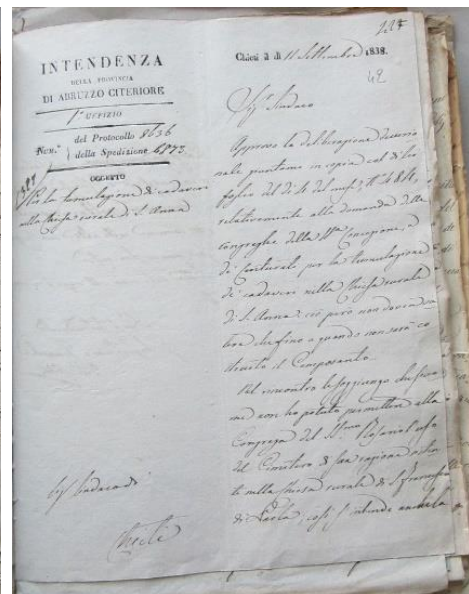 227
INTENDENZA
DELLA PROVINCIA
DI ABRUZZO CITERIORE
1° UFIZIO
Num.° del Protocollo 8636
della Spedizione 6873
OGGETTO
Per la tumulazione di cadaveri
nella Chiesa rurale di S. Anna
Chieti à dì 11 Settembre 1838.
42
Sig. Sindaco
Approvo la deliberazione decurio
nale in copia col di lei
foglio del dì 4 del mese, N° 484,
relativamente alla domanda delle
congreghe della Concezione, e
de' per la tumulazione
de' cadaveri nella Chiesa rurale
di S. Anna: ciò però non dovrà
che fino a quando non sarà co
struito il Camposanto.
Nel rincontro le soggiungo che
me non ho potuto permettere alla
Congrega del SS.mo Rosario l'uso
del Cimitero di sua ragione
te nella Chiesa rurale di S. Francesco
di Paola, così s'intende anche
Sig. Sindaco di
Chieti